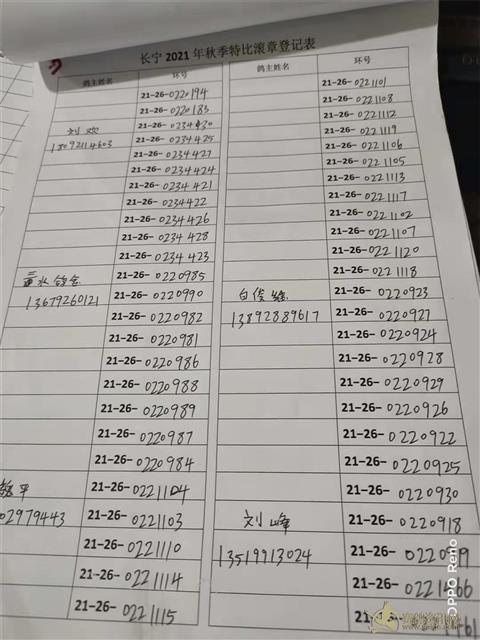 长宁2021年秋季特比滚章登记表
鸽主姓名 环号
21-26-0220194
21-26-0220183
刘欢 21-26-0234430
18092114603 21-26-0234425
21-26-0234427
21-26-0234424
21-26-0234421
21-26-0234422
21-26-0234426
21-26-0234428
21-26-0234423
21-26-0220985
13679260121 21-26-0220990
21-26-0220982
21-26-0220981
21-26-0220986
21-26-0220988
21-26-0220989
21-26-0220987
21-26-0220984
平 21-26-0221104
02979443 21-26-0221103
21-26-0221110
21-26-0221114
21-26-0221115
鸽主姓名 环号
21-26-0221101
21-26-0221108
21-26-0221112
21-26-0221119
21-26-0221106
21-26-0221105
21-26-0221113
21-26-0221117
21-26-0221102
21-26-0221107
21-26-0221120
21-26-0221118
21-26-0220923
13892889617 21-26-0220927
21-26-0220924
21-26-0220928
21-26-0220929
21-26-0220926
21-26-0220922
21-26-0220925
21-26-0220930
刘峰 21-26-0220918
13519913024 21-26-
21-26-
OPPO Reno